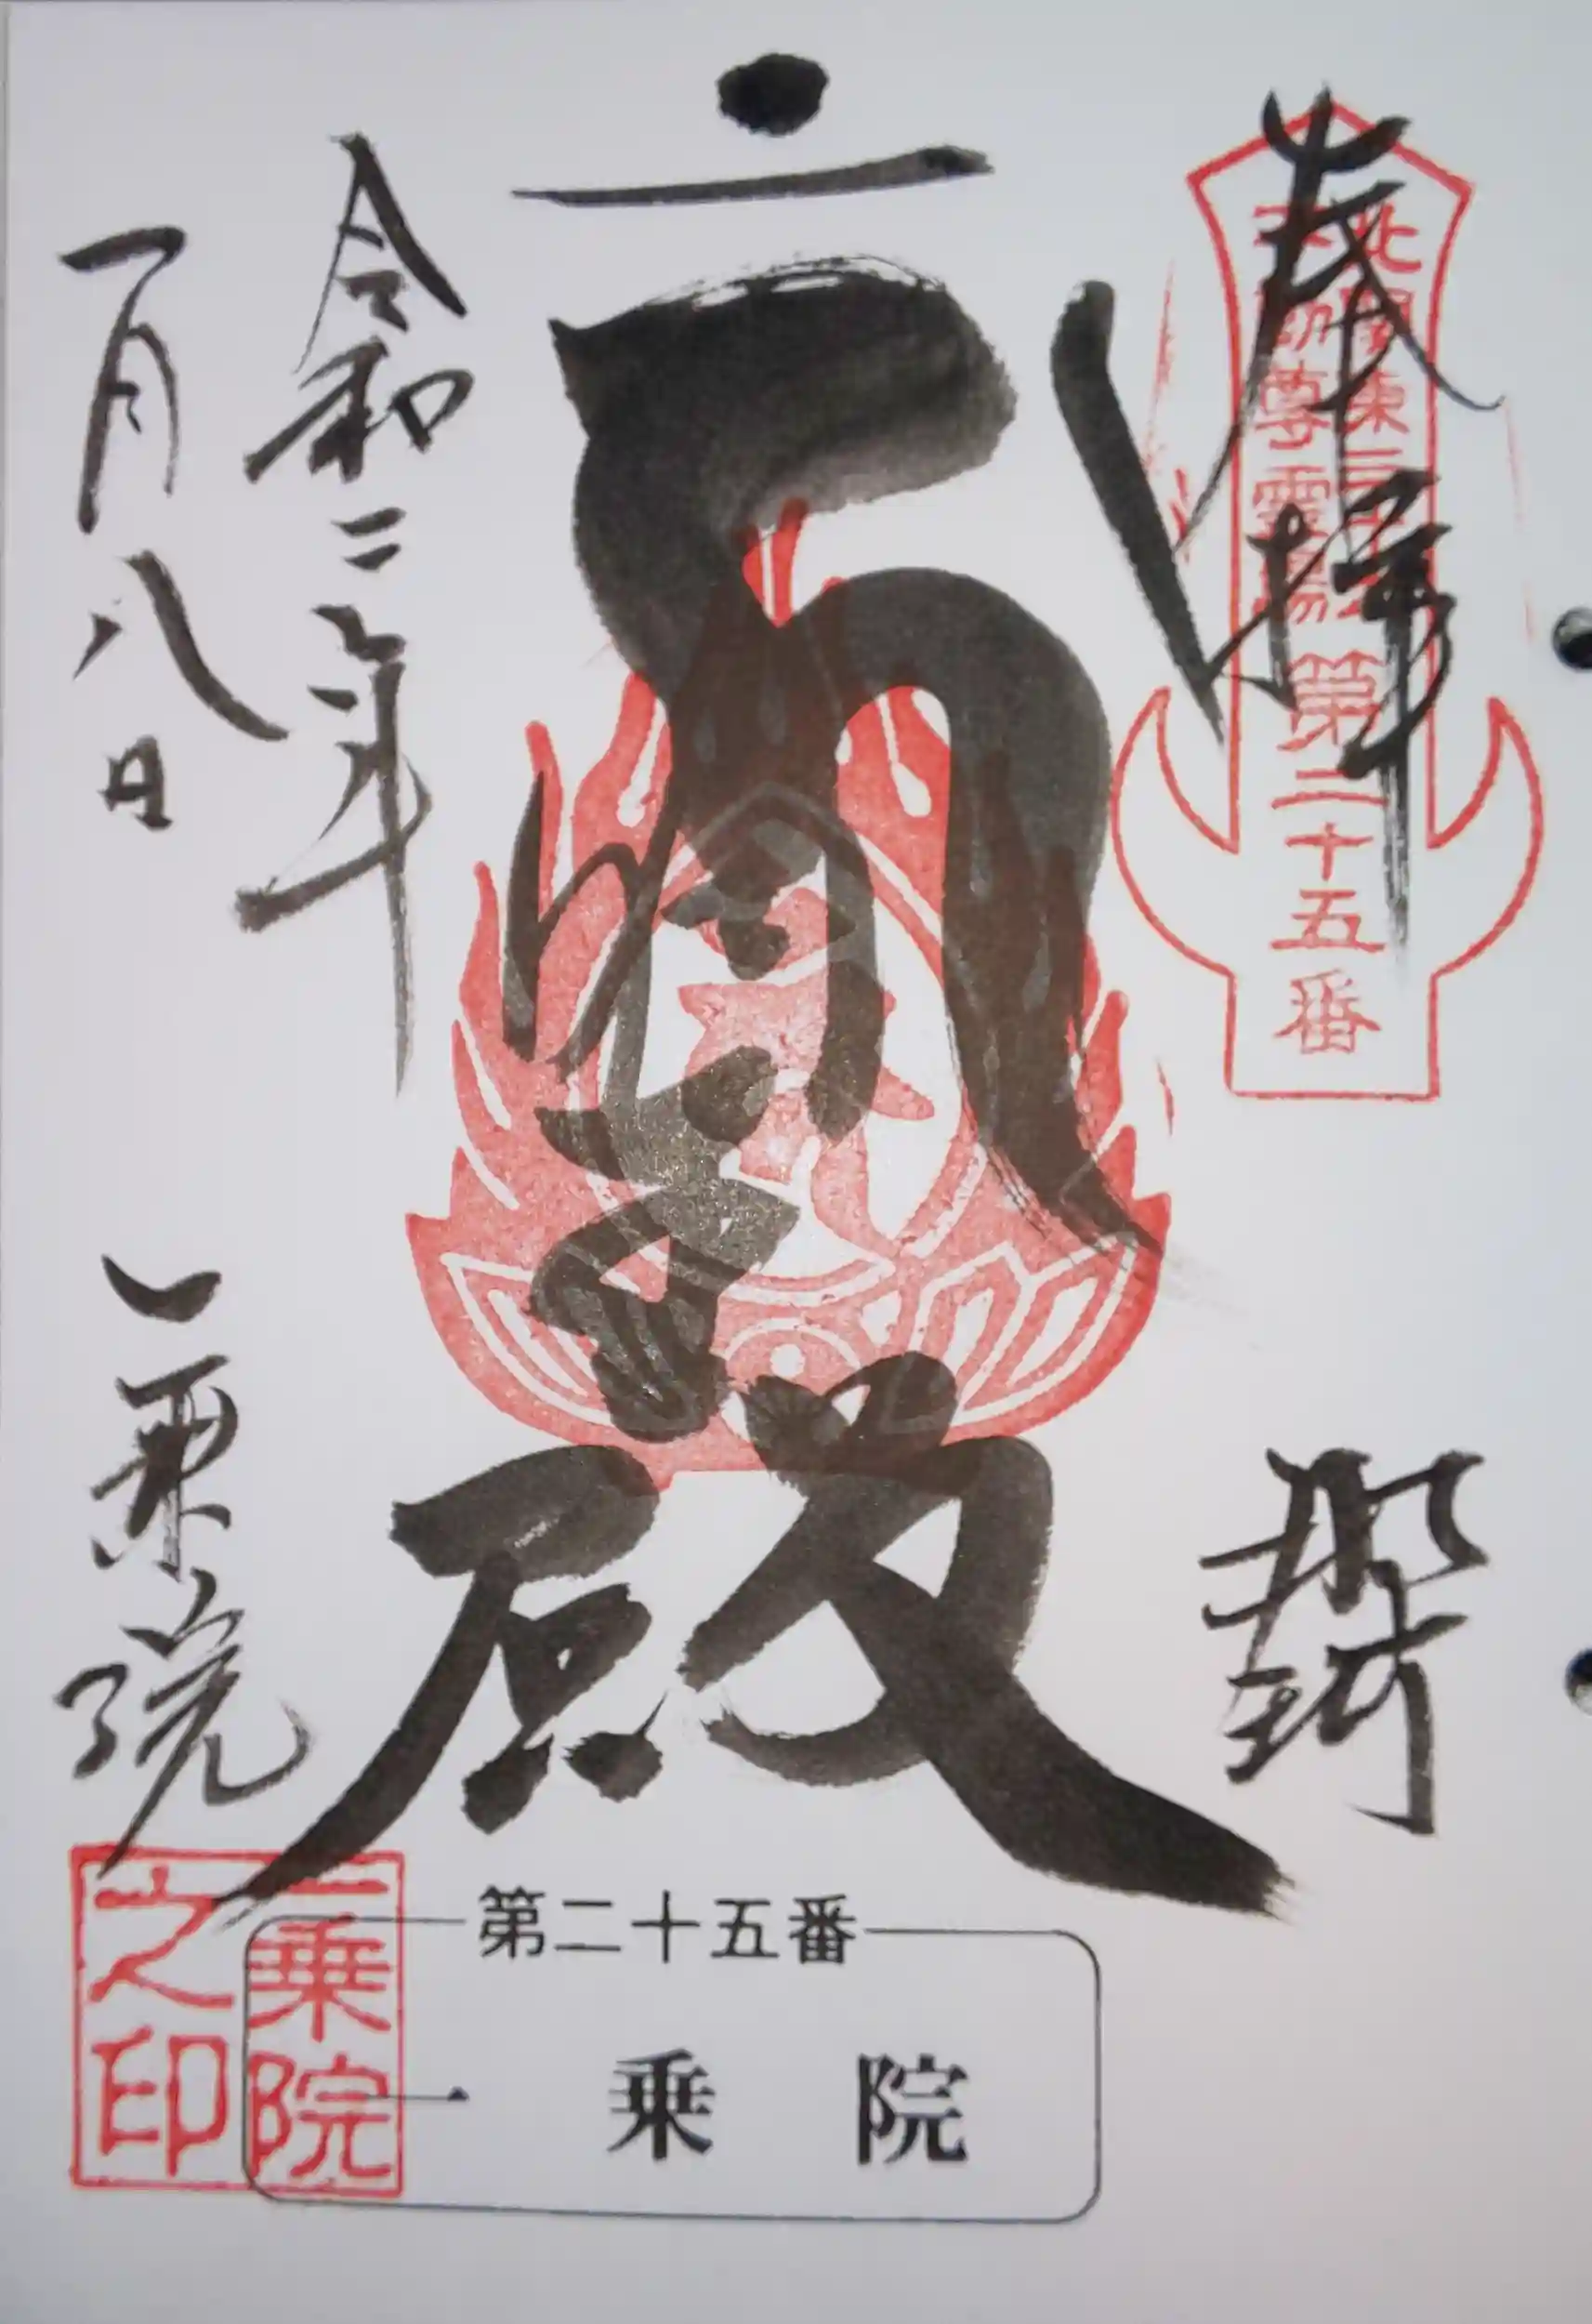 奉拝
北関東三十六
不動尊霊場
第二十五番
殿
令和二年
一月八日
一乗院
一乗院
之印
第二十五番
一乗院